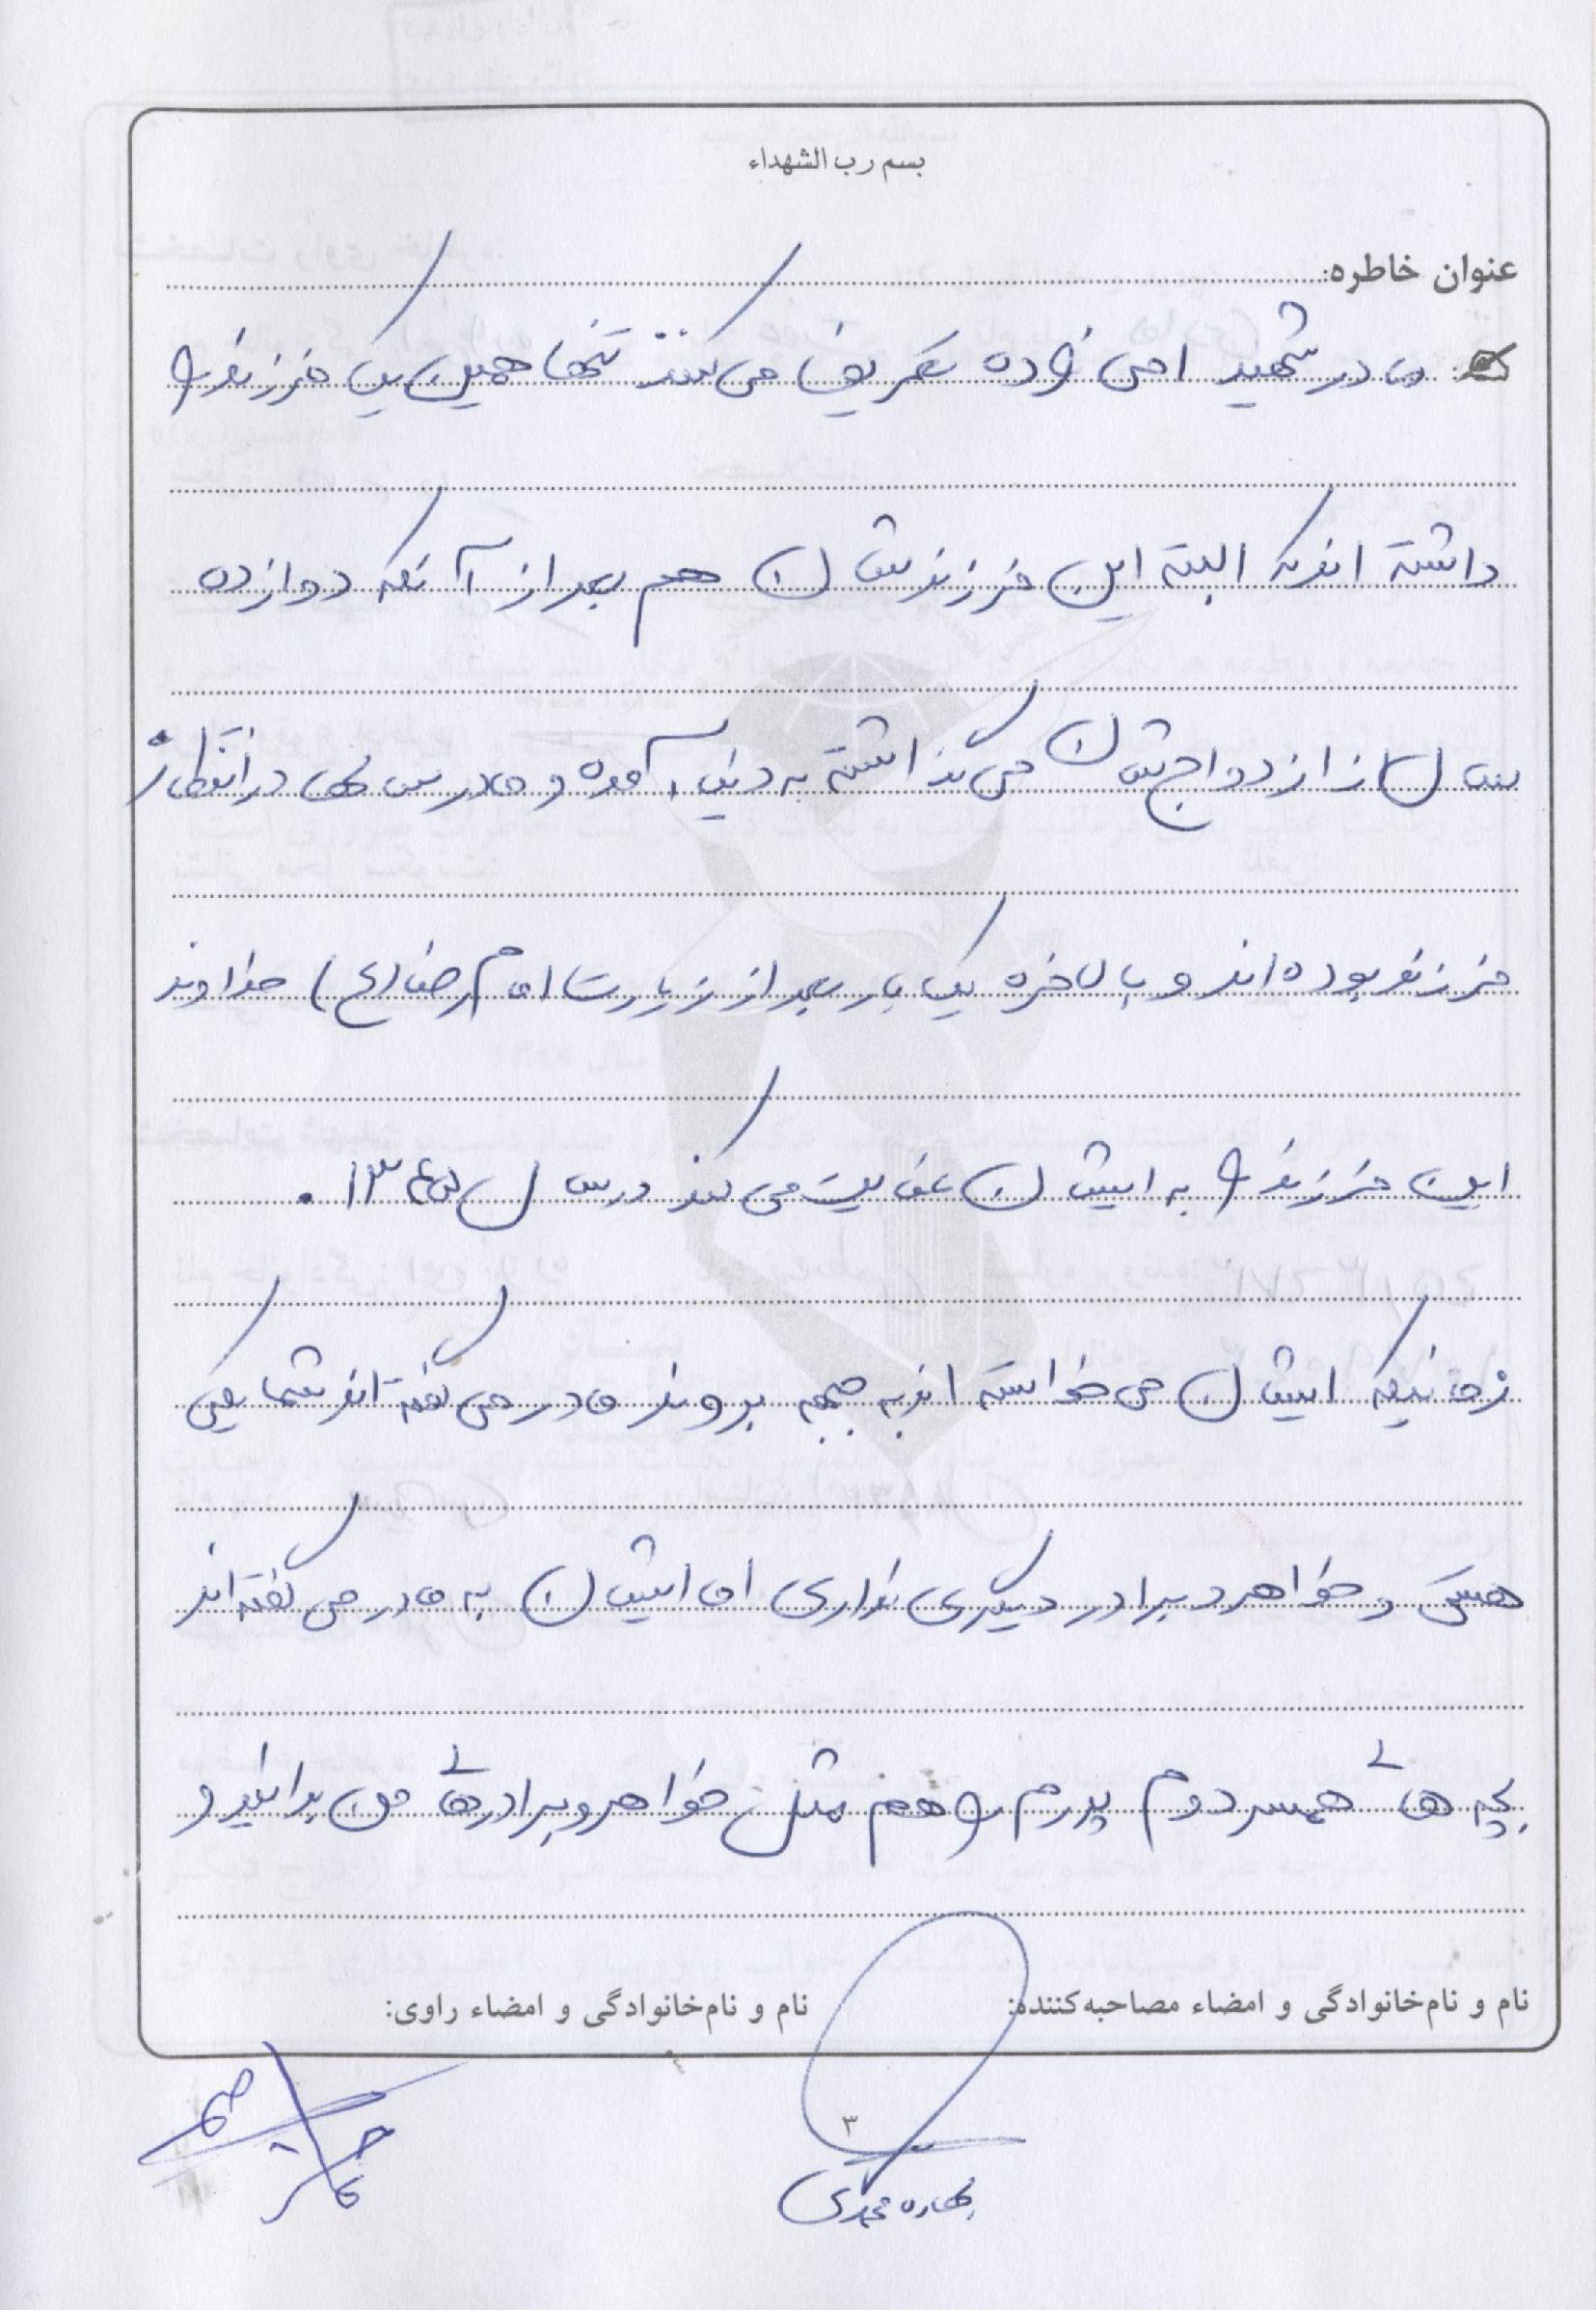 بسم رب الشهداء
عنوان خاطره:
مادر شهید امی زاده تعریف می کنند تنها همین یک فرزند را
داشته اند که البته این فرزندشان هم بعد از آنکه دوازده
سال از ازدواجشان می گذاشته به دنیا آمده و مادر سالها در انتظار
فرزند بوده اند و بالاخره یک بار بعد از زیارت امام رضا (ع) خداوند
این فرزند را به ایشان عنایت می کند در سال ۱۳۴۶.
زمانیکه ایشان می خواسته اند به جبهه بروند مادر می گفته اند شما یکی
هستی و خواهر و برادر دیگری نداری اما ایشان به مادر می گفته اند
بچه های همسر دوم پدرم را هم مثل خواهر و برادرهای من بدانید و
نام و نام‌خانوادگی و امضاء مصاحبه‌کننده:
نام و نام‌خانوادگی و امضاء راوی:
۳
بهاره محمدی